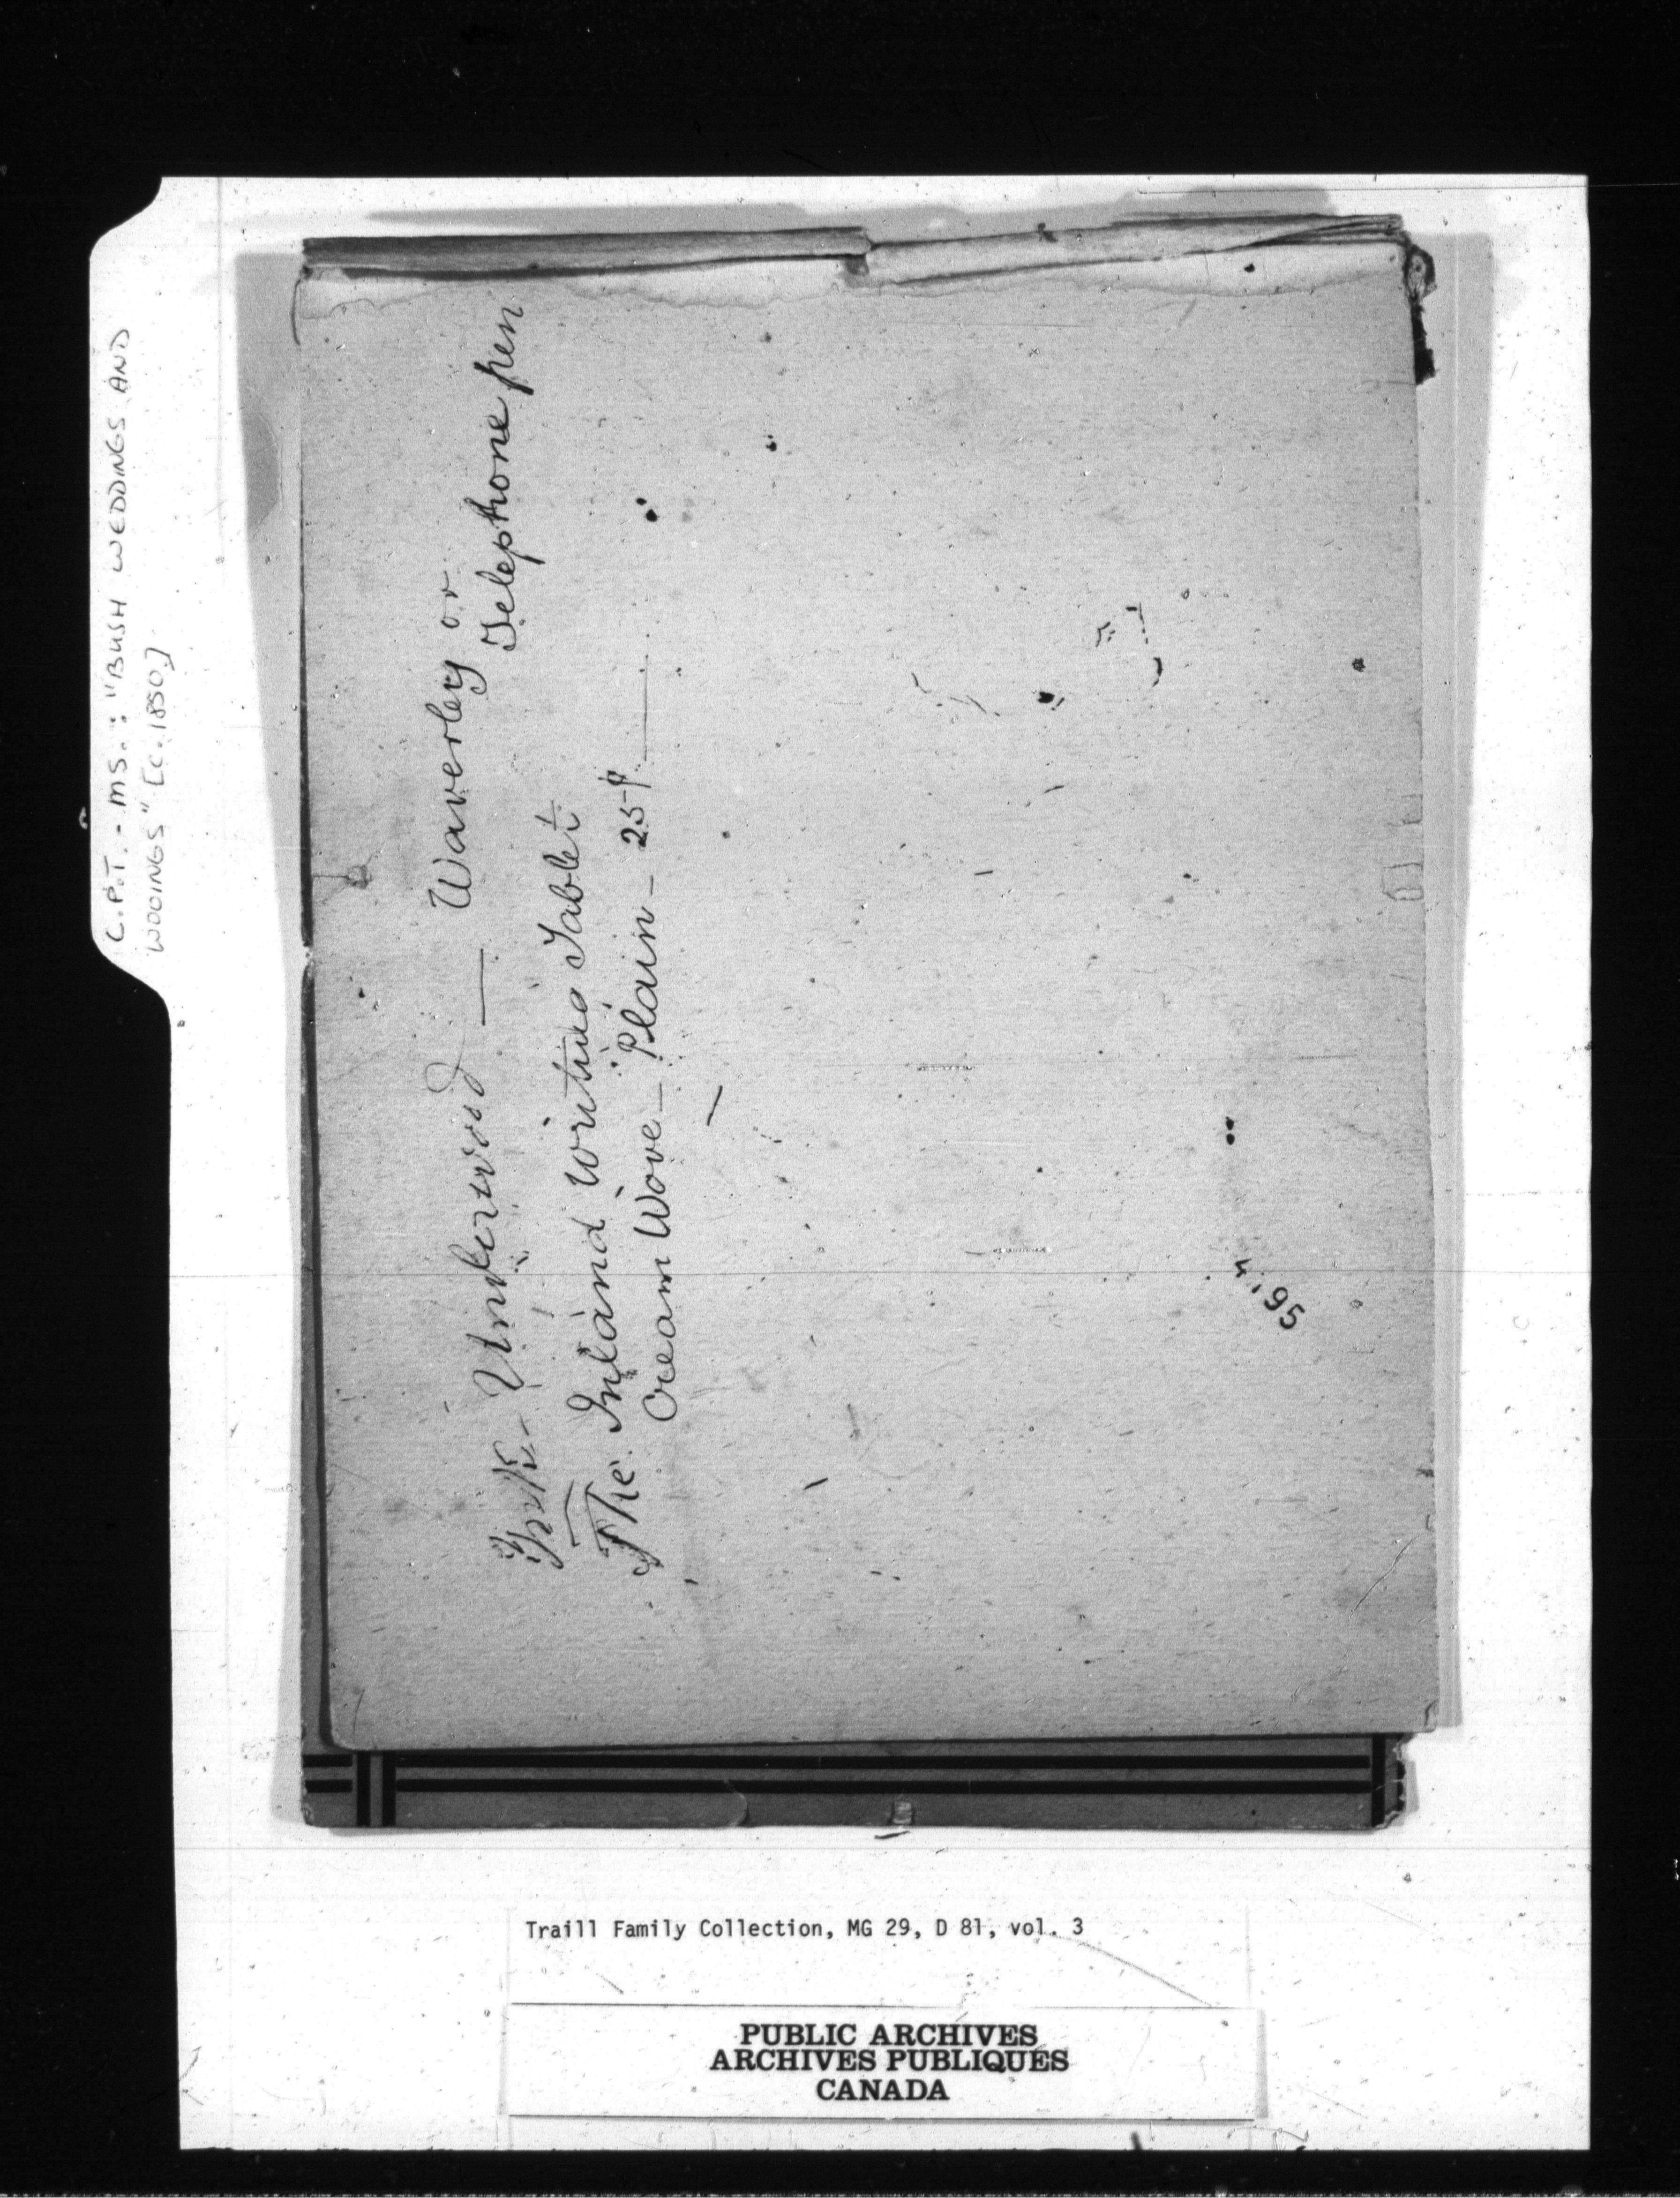 C.P.T. - MS.: "BUSH WEDDINGS AND
WOOINGS" [c. 1850.]
Ink - Underwood — Waverley or
Telephone pen
The Inland Writing Tablet
Cream Wove - Plain - 25¢ —
4.95
Traill Family Collection, MG 29, D 81, vol. 3
PUBLIC ARCHIVES
ARCHIVES PUBLIQUES
CANADA